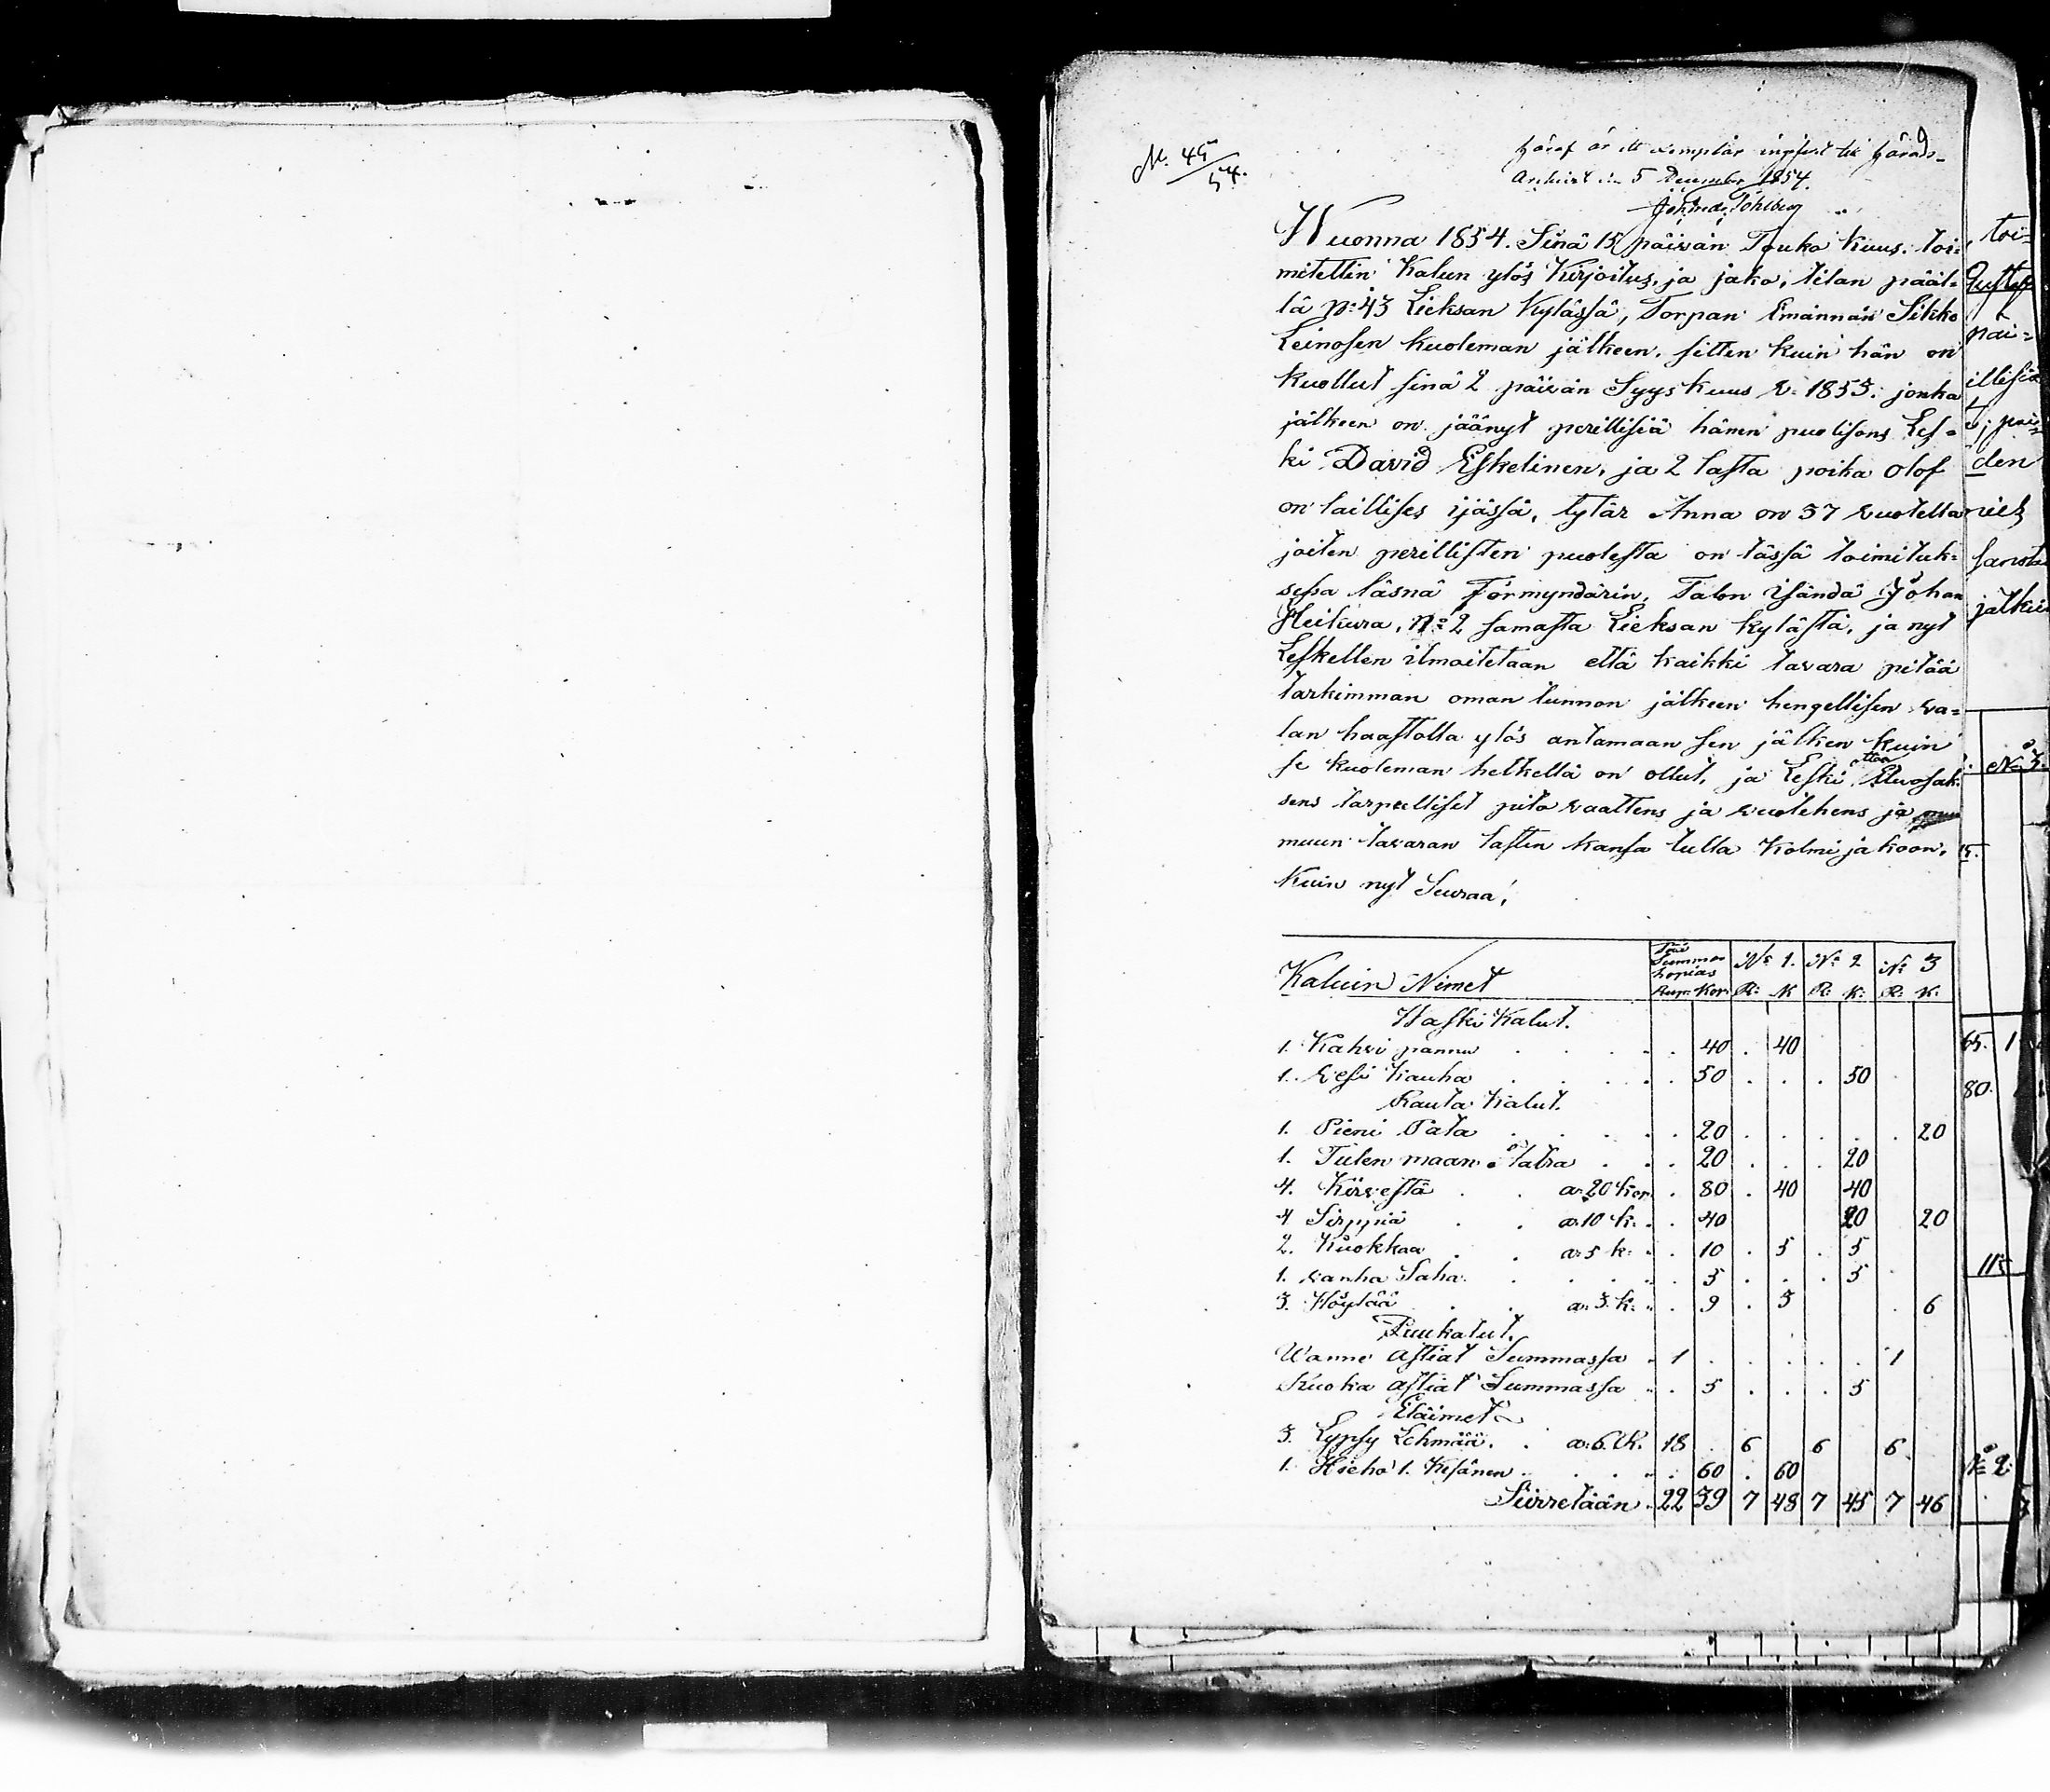 No. 45/54.
häraf är ett exemplar ingifvet till härads-
Archivet den 5 December 1854.
Wuonna 1854. Sinä 15 päivän Touko Kuus. toi-
mitettin Kalun ylös Kirjoitus, ja jako, tilan pääl-
lä No 43 Lieksan Kylässä, Torpan Emännän Silkko
Leinosen kuoleman jälkeen, sitten kuin hän on
kuollut sinä 2 päivän Syys kuus v. 1853: jonka
jälkeen on jäänyt perillisiä hänen puolisons Les-
ki David Eskelinen, ja 2 lasta poika Olof
on laillises ijässä, tytär Anna on 37 vuotella
joiten perillisten puolesta on tässä toimituk-
sessa läsnä Förmyndärin, Talon isändä Johan
Heikura, No 2 samasta Lieksan kylästä, ja nyt
Leskellen ilmoitetaan että kaikki tavara pitää
tarkimman oman tunnon jälkeen hengellisen va-
lan haastolla ylös antamaan sen jälken kuin
se kuoleman hetkellä on ollut, ja Leski ottaa Etuosak-
sens tarpeelliset pito vaattens ja vuotehens ja
muun tavaran lasten kansa tulla Kolmijakoon,
Kuin nyt Seuraa,
Kaluin Nimet Summa kopias Rup: Kop: No 1. R: K No 2 R: K: No 3 R: K:
Waski Kalut.
1. Kahvi pannu 40 40
1. Vesi Kauha 50 50
Rauta Kalut.
1. Pieni Pata 20 20
1. Tulen maan 20 20
4. Kirvestä a. 20 Kop. 80 40 40
4 Sirppiä a. 10 k. 40 20 20
2. Kuokkaa a. 5 k: 10 5 5
1. vanha Saha 5 5
3. Höylää a. 3. k. 9 3 6
Puukalut.
Wanne astiat Summassa 1 1
Ruoka astiat Summassa 5 5
Eläimet
3. Lypsy Lehmää. a. 6. R. 18 6 6 6
1. Hieho 1. Kesänen 60 60
Siirretään 22 39 7 48 7 45 7 46
toi-
Gustaf
päi-
illisiä
den
sanota
jälkei
No 3.
15.
65. 1
80.
115
No 2